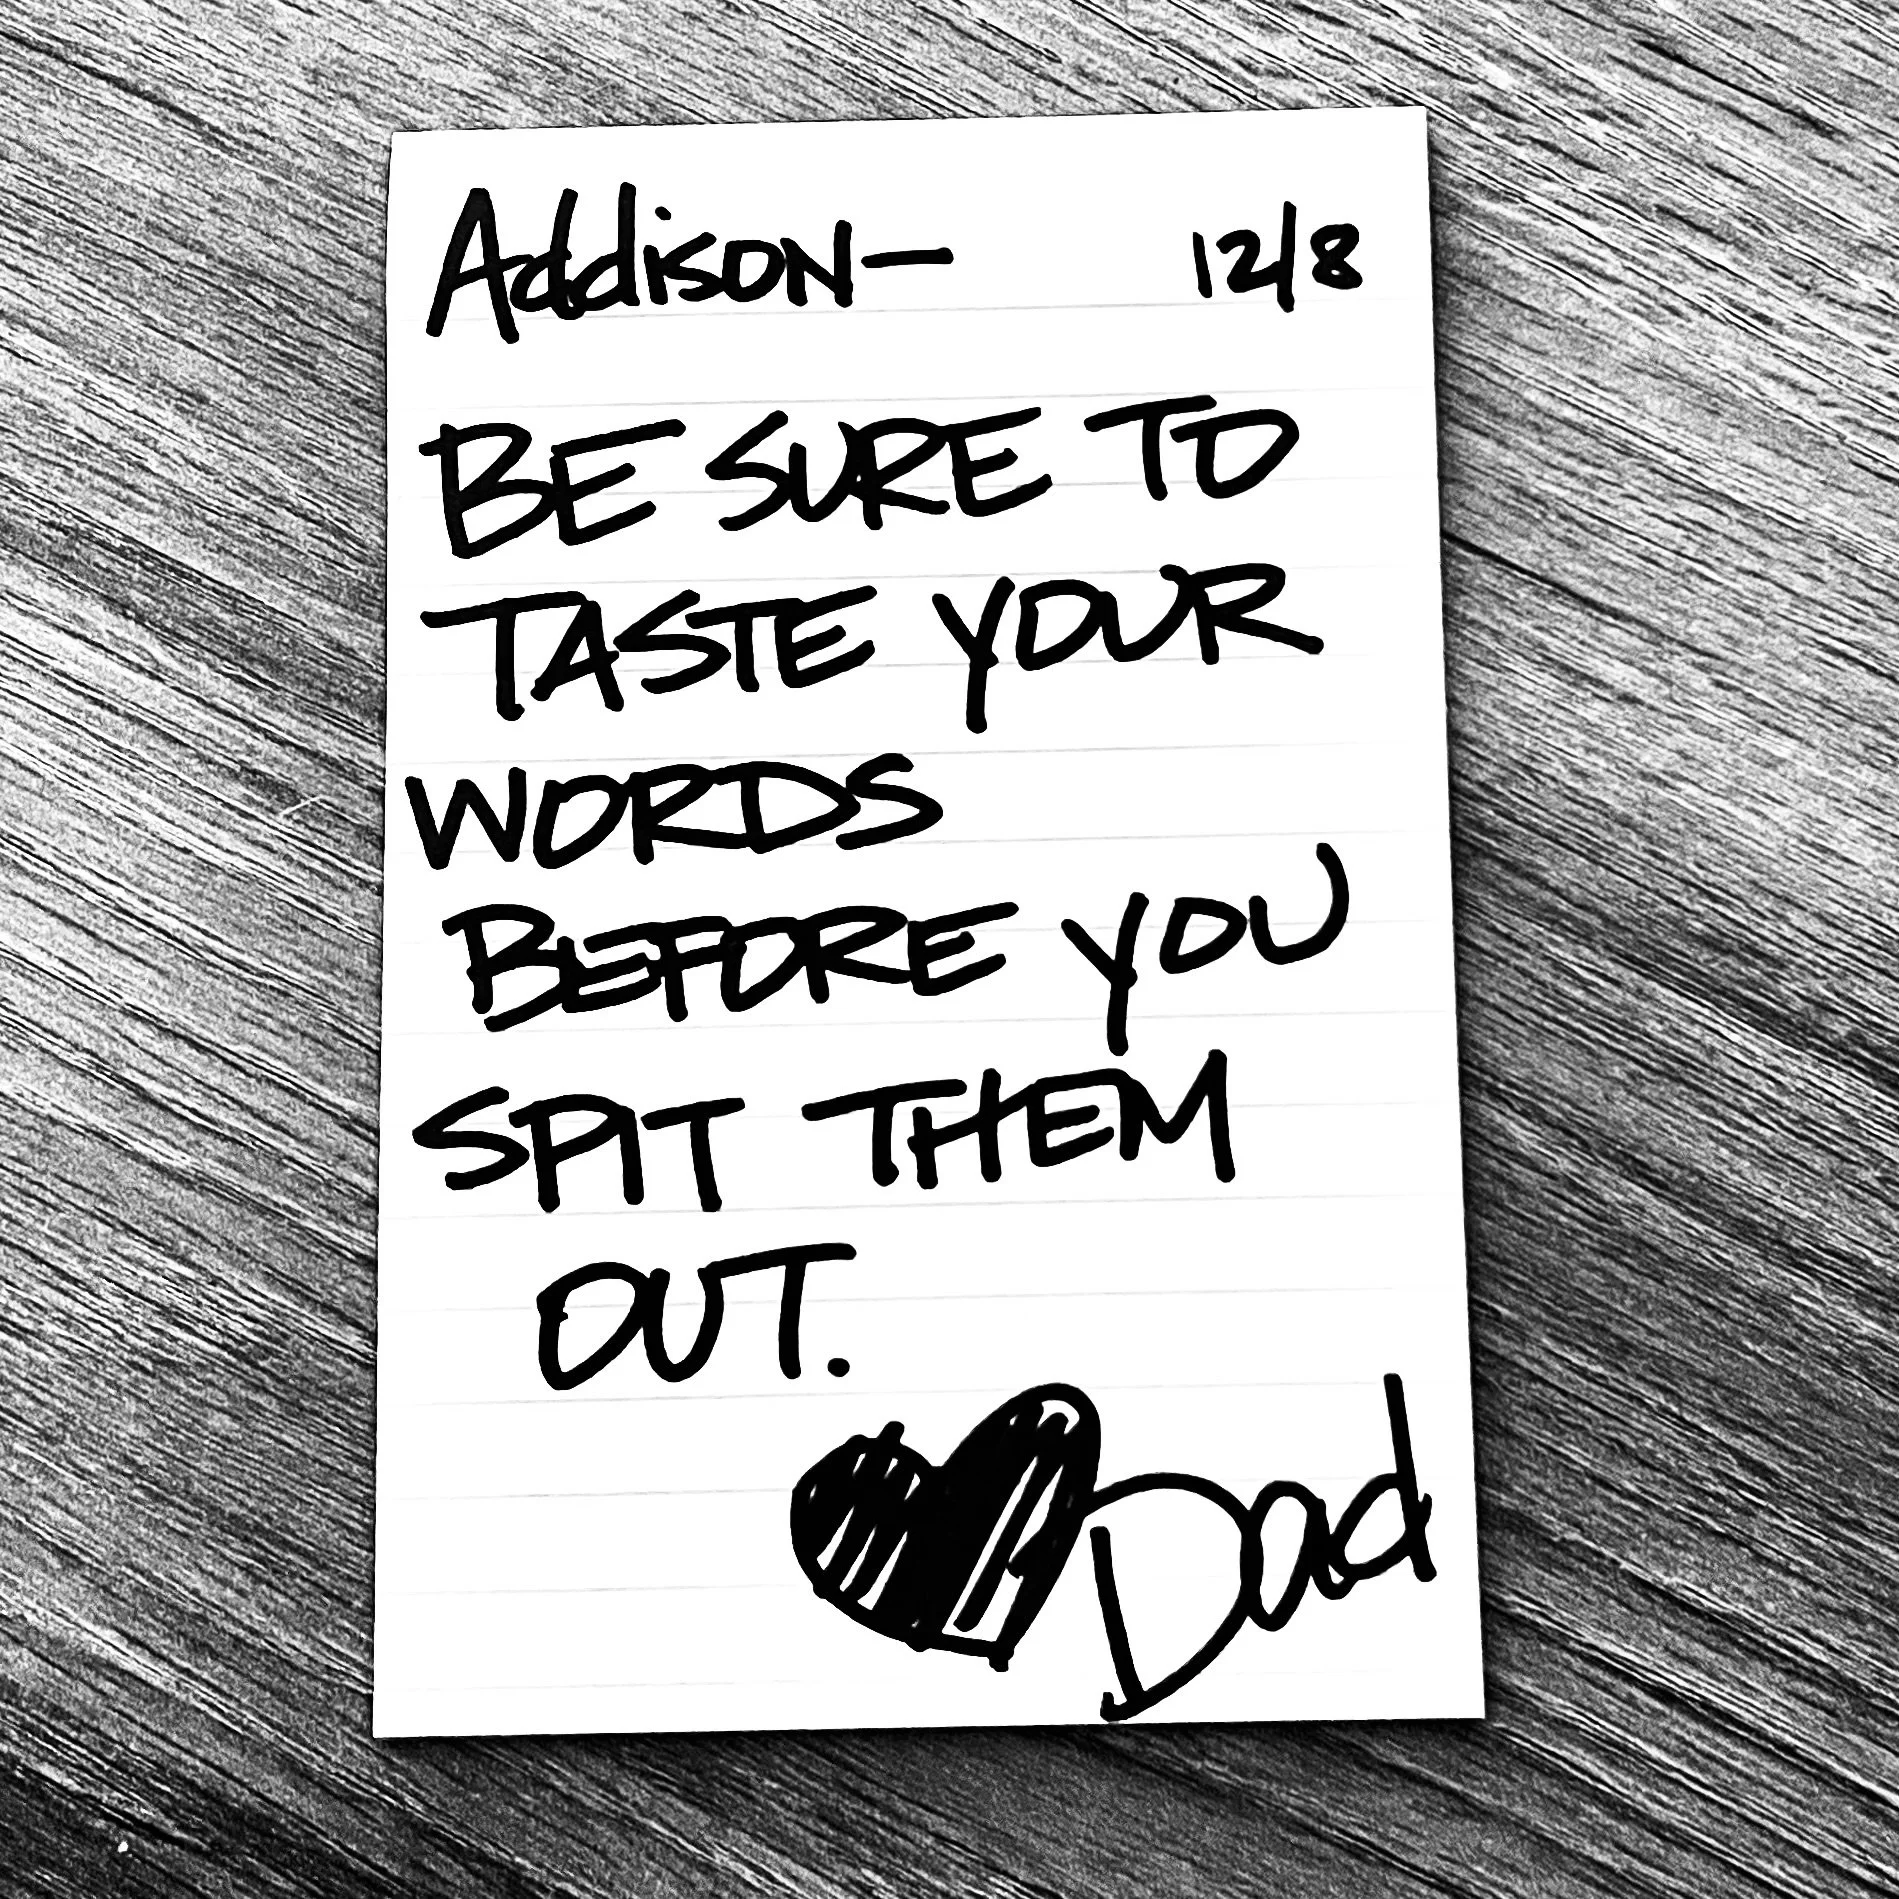 Addison— 12/8
BE SURE TO
TASTE YOUR
WORDS
BEFORE YOU
SPIT THEM
OUT.
Dad